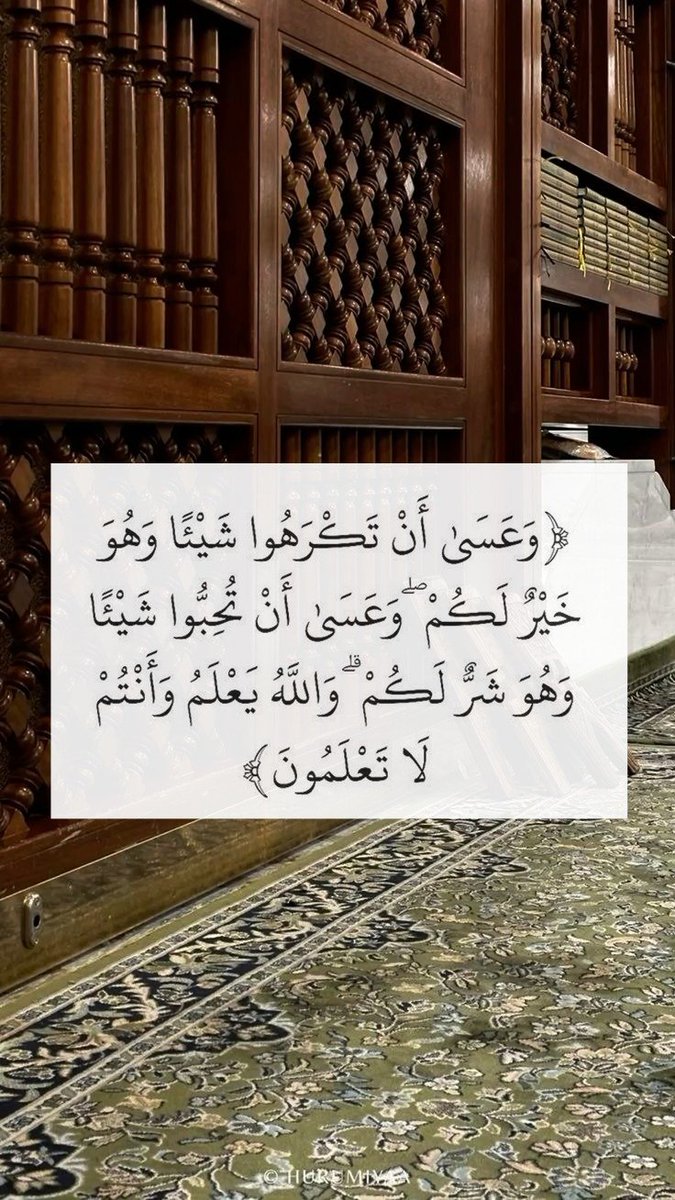 ﴿وَعَسَىٰ أَنْ تَكْرَهُوا شَيْئًا وَهُوَ
خَيْرٌ لَكُمْ ۖ وَعَسَىٰ أَنْ تُحِبُّوا شَيْئًا
وَهُوَ شَرٌّ لَكُمْ ۗ وَاللَّهُ يَعْلَمُ وَأَنْتُمْ
لَا تَعْلَمُونَ﴾